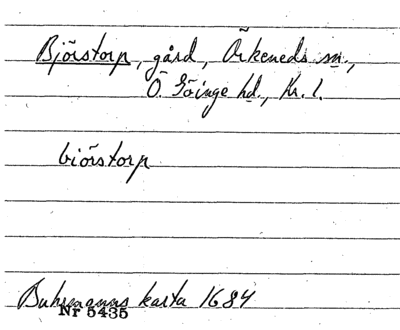 Björstorp, gård, Örkeneds sn.,
Ö. Göinge hd., Kr. l.
biörstorp
Buhrmanns karta 1684
Nr 5435